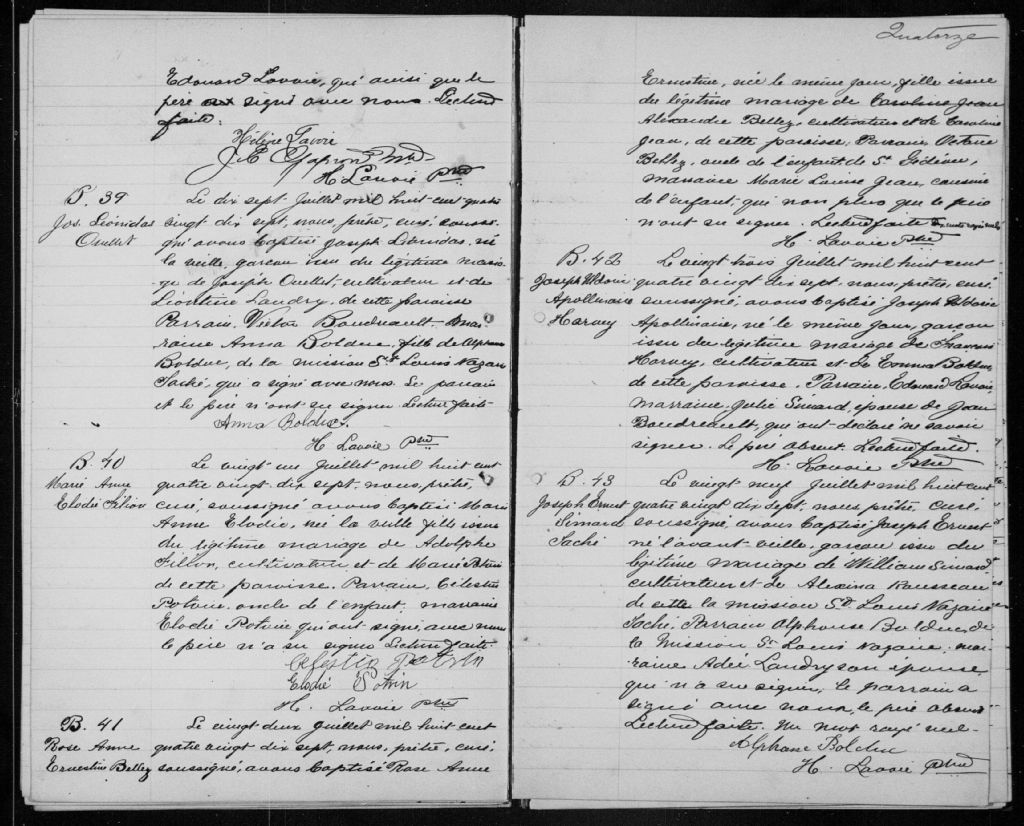 Edouard Lavoie, qui ainsi que le
père ont signé avec nous. Lecture
faite.
Hélène Lavoie
H. Lavoie Ptre
B. 39
Jos. Léonidas
Ouellet
Le dix sept Juillet mil huit cent quatre
vingt dix sept, nous, prêtre, curé, soussi-
gné avons baptisé Joseph Léonidas, né
la veille, garçon issu du légitime maria-
ge de Joseph Ouellet, cultivateur et de
Léontine Landry, de cette paroisse
Parrain, Victor Boudreault. Mar-
raine Anna Bolduc, fille de Alphonse
Bolduc, de la mission St Louis Nazaire
Taché, qui a signé avec nous. Le parrain
et le père n'ont su signer. Lecture faite.
Anna Bolduc.
H. Lavoie Ptre
B. 40
Marie Anne
Elodie Fillion
Le vingt un Juillet mil huit cent
quatre vingt dix sept, nous, prêtre,
curé, soussigné avons baptisé Marie
Anne Elodie, née la veille fille issue
du légitime mariage de Adolphe
Fillion, cultivateur, et de Marie Potvin
de cette paroisse. Parrain, Célestin
Potvin, oncle de l'enfant, marraine
Elodie Potvin qui ont signé avec nous
le père n'a su signer Lecture faite.
Celestin Potvin
Elodie Potvin
H. Lavoie Ptre
B. 41
Rose Anne
Ernestine Belley
Le vingt deux Juillet mil huit cent
quatre vingt dix sept, nous, prêtre, curé,
soussigné, avons baptisé Rose Anne
Quatorze
Ernestine, née le même jour, fille issue
du légitime mariage de Caroline Jean
Alexandre Belley, cultivateur et de Caroline
Jean, de cette paroisse, Parrain Octave
Belley, oncle de l'enfant de St Gédéon,
marraine Marie Louise Jean, cousine
de l'enfant, qui non plus que le père
n'ont su signer. Lecture faite
H. Lavoie Ptre
B. 42
Joseph
Apollinaire
Harvey
Le vingt trois Juillet mil huit cent
quatre vingt dix sept, nous, prêtre, curé,
soussigné, avons baptisé Joseph
Apollinaire, né le même jour, garçon
issu du légitime mariage de François
Harvey, cultivateur et de Emma
de cette paroisse. Parrain, Edouard Lavoie
Marraine, Julie Simard, épouse de Jean
Boudreault, qui ont déclaré ne savoir
signer. Le père absent. Lecture faite.
H. Lavoie Ptre
B. 43
Joseph Ernest
Simard
Taché
Le vingt neuf Juillet mil huit cent
quatre vingt dix sept, nous prêtre, curé
soussigné, avons baptisé Joseph Ernest
né l'avant-veille, garçon issu du
légitime mariage de William Simard,
cultivateur et de Alexina Rousseau
de cette la mission St Louis Nazaire
Taché. Parrain Alphonse Bolduc, de
la Mission St Louis Nazaire, mar-
raine Adée Landry son épouse
qui n'a su signer, le parrain a
signé avec nous, le père absent
Lecture faite. Un mot rayé nul.
Alphonse Bolduc
H. Lavoie Ptre